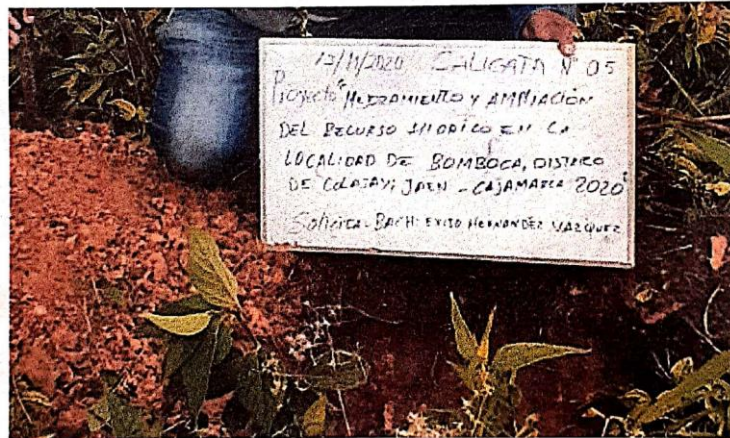 13/11/2020 CALICATA N° 05
Proyecto "MEJORAMIENTO Y AMPLIACIÓN
DEL RECURSO HIDRICO EN LA
LOCALIDAD DE BOMBOCA, DISTRITO
DE COLASAY, JAEN - CAJAMARCA 2020"
Solicita: BACH: EXITO HERNANDEZ VAZQUEZ